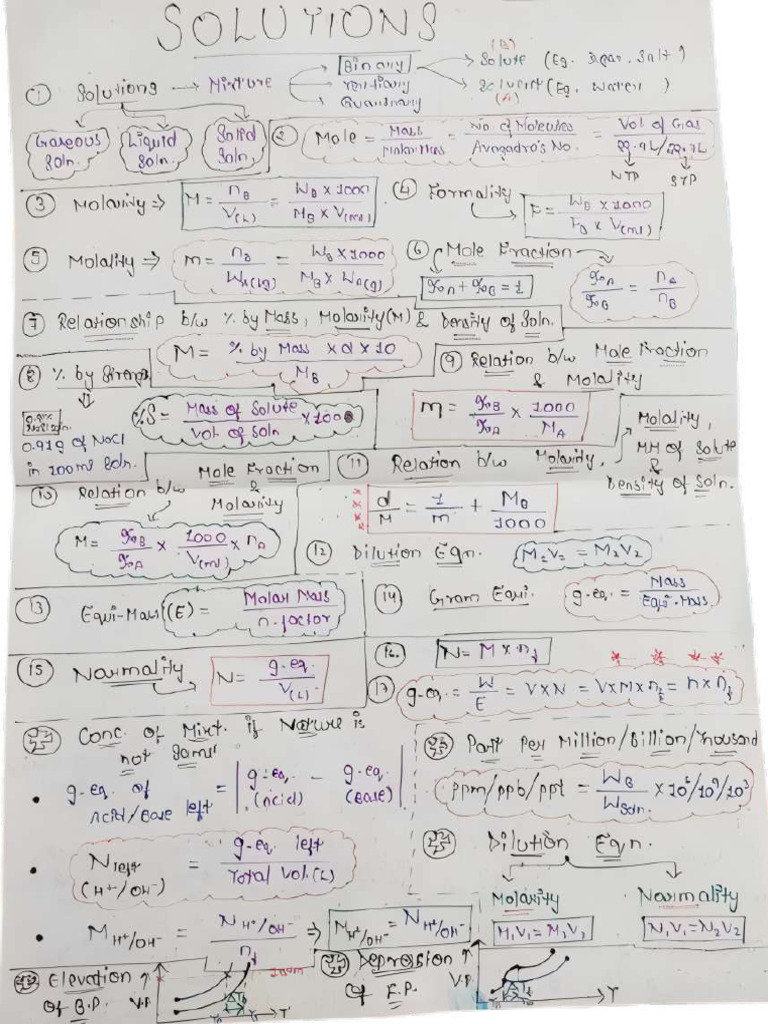 SOLUTIONS
① Solutions → Mixture
Binary
Tertiary
Quaternary
(B)
Solute (Eg. Sugar, Salt)
Solvent (Eg. Water)
(A)
Gaseous Soln.
Liquid Soln.
Solid Soln.
② Mole = Mass / Molar Mass = No. of Molecules / Avogadro's No. = Vol of Gas / 22.4L/22.7L
NTP STP
③ Molarity ⇒ M = nB / V(L) = WB × 1000 / MB × V(ml)
④ Formality
F = WB × 1000 / FB × V(ml)
⑤ Molality ⇒ m = nB / WA(kg) = WB × 1000 / MB × WA(g)
⑥ Mole Fraction
χA + χB = 1
χA / χB = nA / nB
⑦ Relationship b/w % by Mass, Molarity(M) & Density of Soln.
M = % by Mass × d × 10 / MB
⑧ % by Strength
0.91g of NaCl
in 100ml Soln.
%S = Mass of Solute / Vol. of Soln × 100
⑨ Relation b/w Mole Fraction
& Molality
m = χB / χA × 1000 / MA
⑩ Relation b/w Mole Fraction & Molarity
M = χB / χA × 1000 / V(ml) × nA
⑪ Relation b/w Molarity,
Molality,
MM of Solute
&
Density of Soln.
d / M = 1 / m + MB / 1000
⑫ Dilution Eqn. M1V1 = M2V2
⑬ Equi-Mass (E) = Molar Mass / n-factor
⑭ Gram Equi. g-eq. = Mass / Equi-Mass
⑮ Normality
N = g-eq. / V(L)
16. N = M × nf
⑰ g-eq. = W / E = V×N = V×M×nf = n×nf
Conc. of Mixt. if Nature is
not same
• g-eq. of Acid/Base left = | g-eq. (Acid) − g-eq. (Base) |
• Nleft (H+/OH-) = g-eq. left / Total Vol.(L)
• MH+/OH- = NH+/OH- / nf ⇒ MH+/OH- = NH+/OH-
Part Per Million/Billion/Thousand
ppm/ppb/ppt = WB / WSoln. × 10⁶/10⁹/10³
Dilution Eqn.
Molarity
M1V1 = M2V2
Normality
N1V1 = N2V2
Elevation ↑
Of B.P. V.P.
T
Depression ↑
Of F.P. V.P.
T